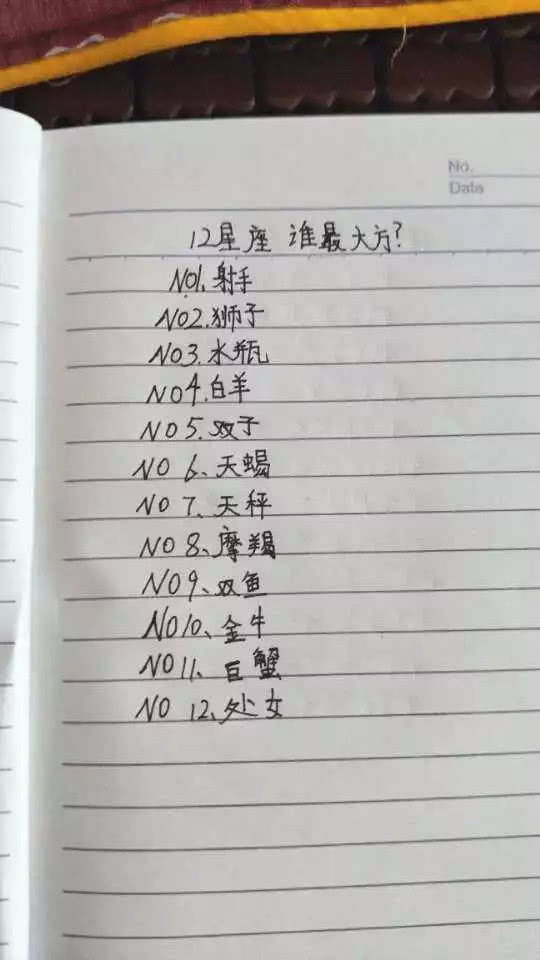 No.
Date
12星座 谁最大方?
NO1.射手
NO2.狮子
NO3.水瓶
NO4.白羊
NO5.双子
NO 6、天蝎
NO 7、天秤
NO 8、摩羯
NO9、双鱼
NO10、金牛
NO11、巨蟹
NO 12、处女